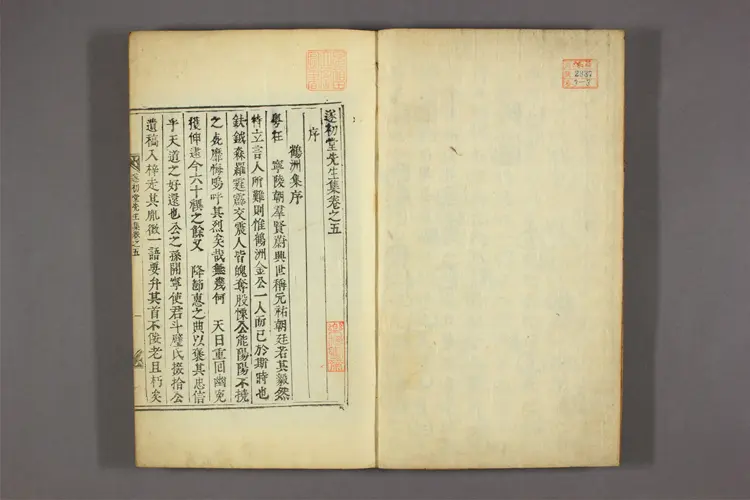 遂初堂先生集卷之五
序
鶴洲集序
粤在 寧陵朝羣賢蔚興世稱元祐朝廷若其毅然
特立言人所難則惟鶴洲金公一人而已於斯時也
鈇鉞森羅霆霹交震人皆魄奪股慄公能陽陽不撓
之死靡悔嗚呼其烈矣哉無幾何 天日重回幽冤
獲伸逮今六十禩之餘又 降節惠之典以褒其忠信
乎天道之好還也公之孫開寧使君斗璧氏掇拾公
遺稿入梓走其胤徵一語要弁其首不佞老且朽矣
遂初堂先生集卷之五
一
2187
5-5